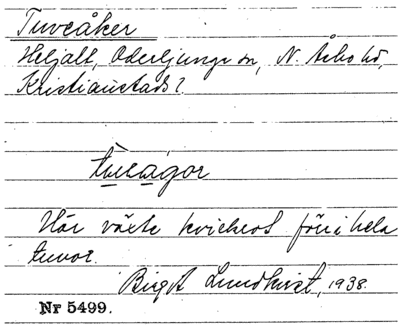 Tuveåker
Heljalt, Oderljunga sn, N. Åsbo hd,
Kristianstads l.
tuvagor
Här växte kvickrot förr i hela
tuvor.
Birgit Lundkvist, 1938.
Nr 5499.